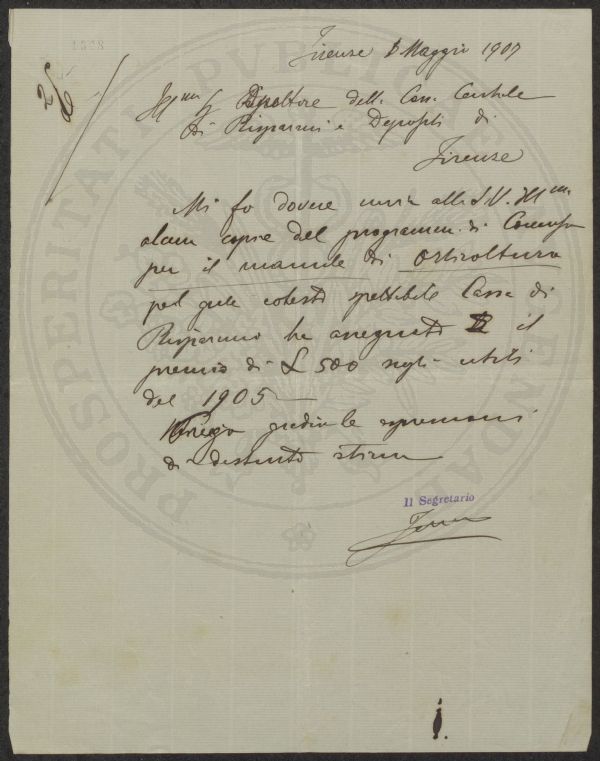 Firenze 6 Maggio 1907
Ill.mo Sig. Direttore della Cassa Centrale
di Risparmi e Depositi di
Firenze
Mi fo dovere inviare alla S.V. Ill.ma
alcune copie del programma di Concorso
per il manuale di Orticoltura
pel quale cotesta spettabile Cassa di
Risparmio ha assegnato il
premio di £ 500 sugli utili
del 1905
Prego gradire le espressioni
di distinta stima
Il Segretario
PROSPERITATI PUBLICAE AUGENDAE